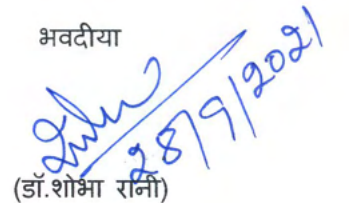 भवदीया
28/9/2021
(डॉ.शोभा रानी)